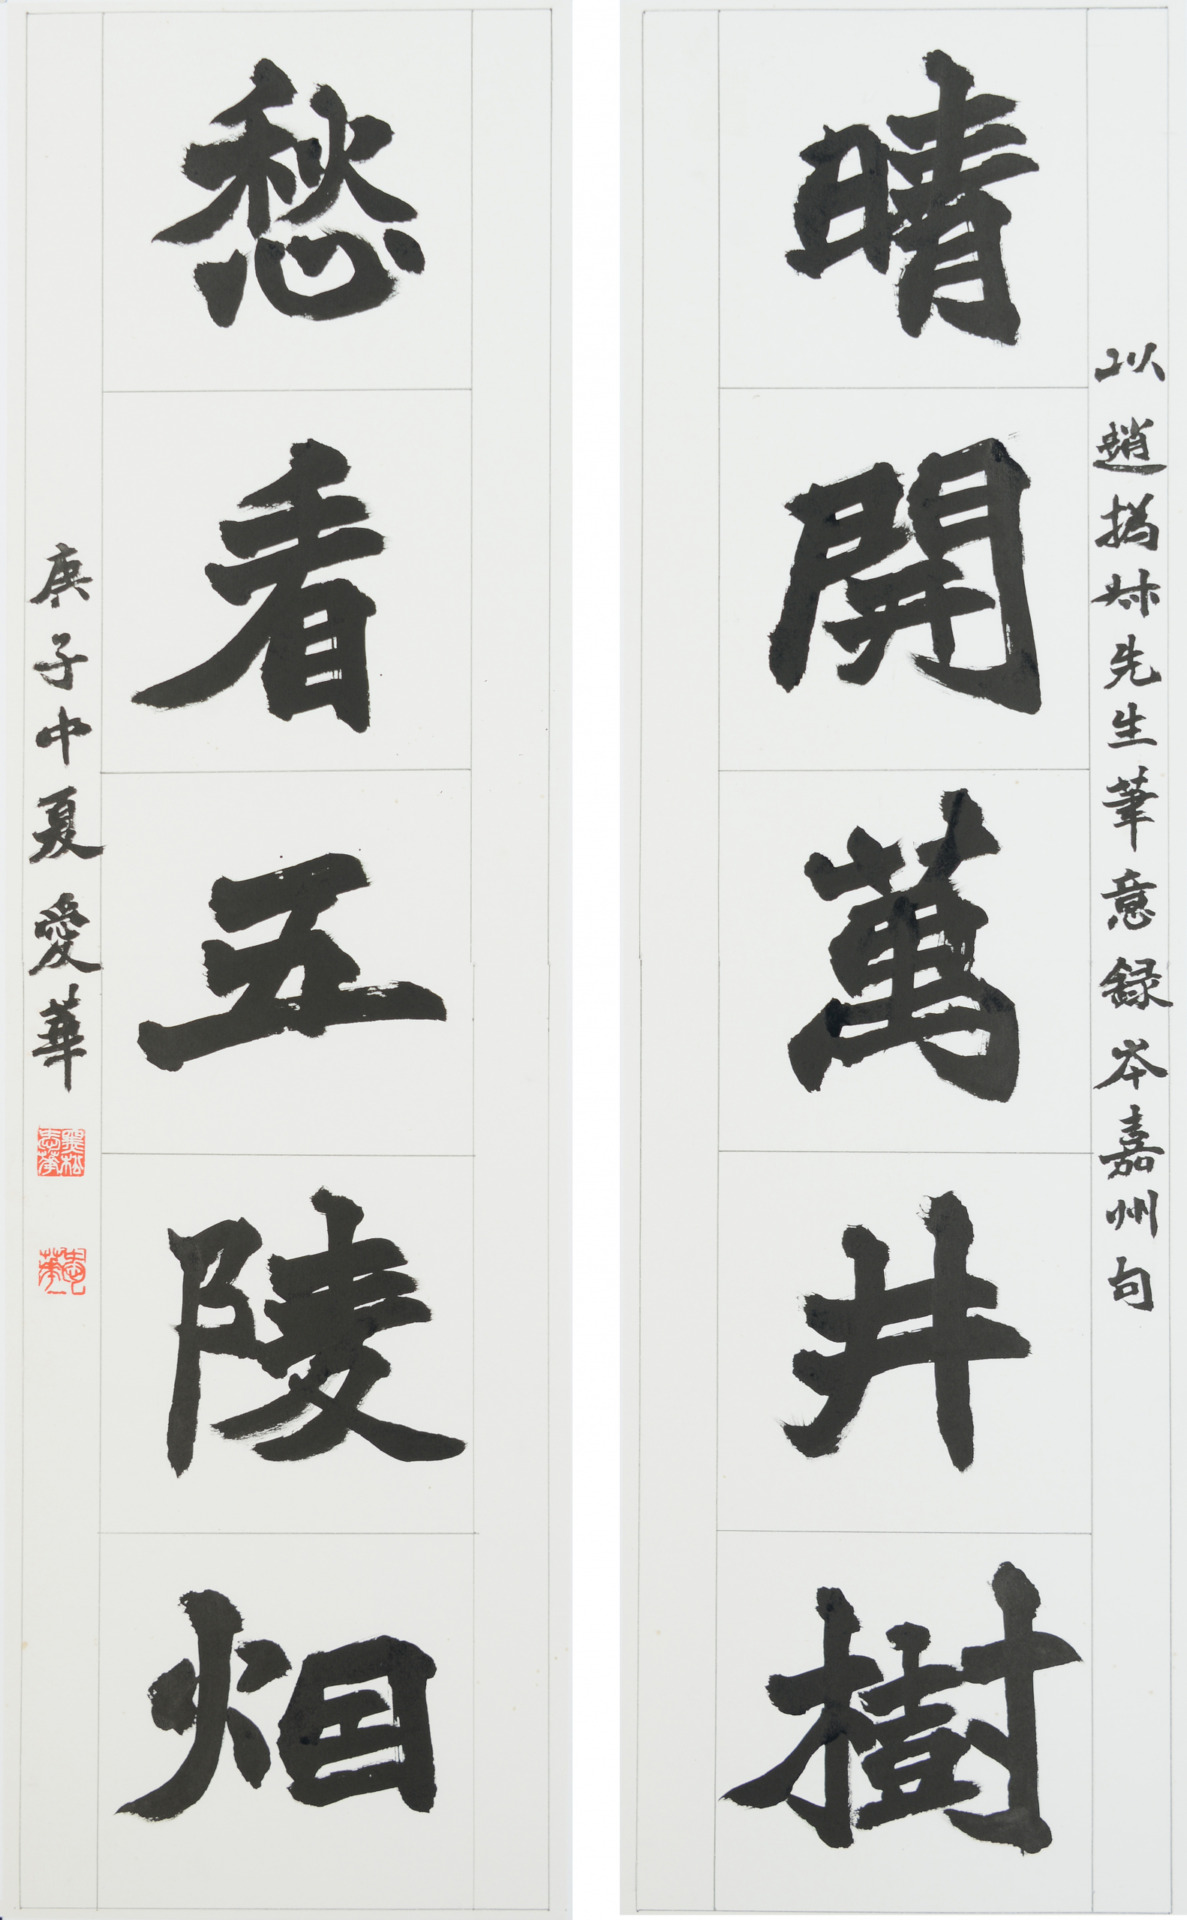 以趙撝叔先生筆意録岑嘉州句
晴開萬井樹
愁看五陵烟
庚子中夏愛華